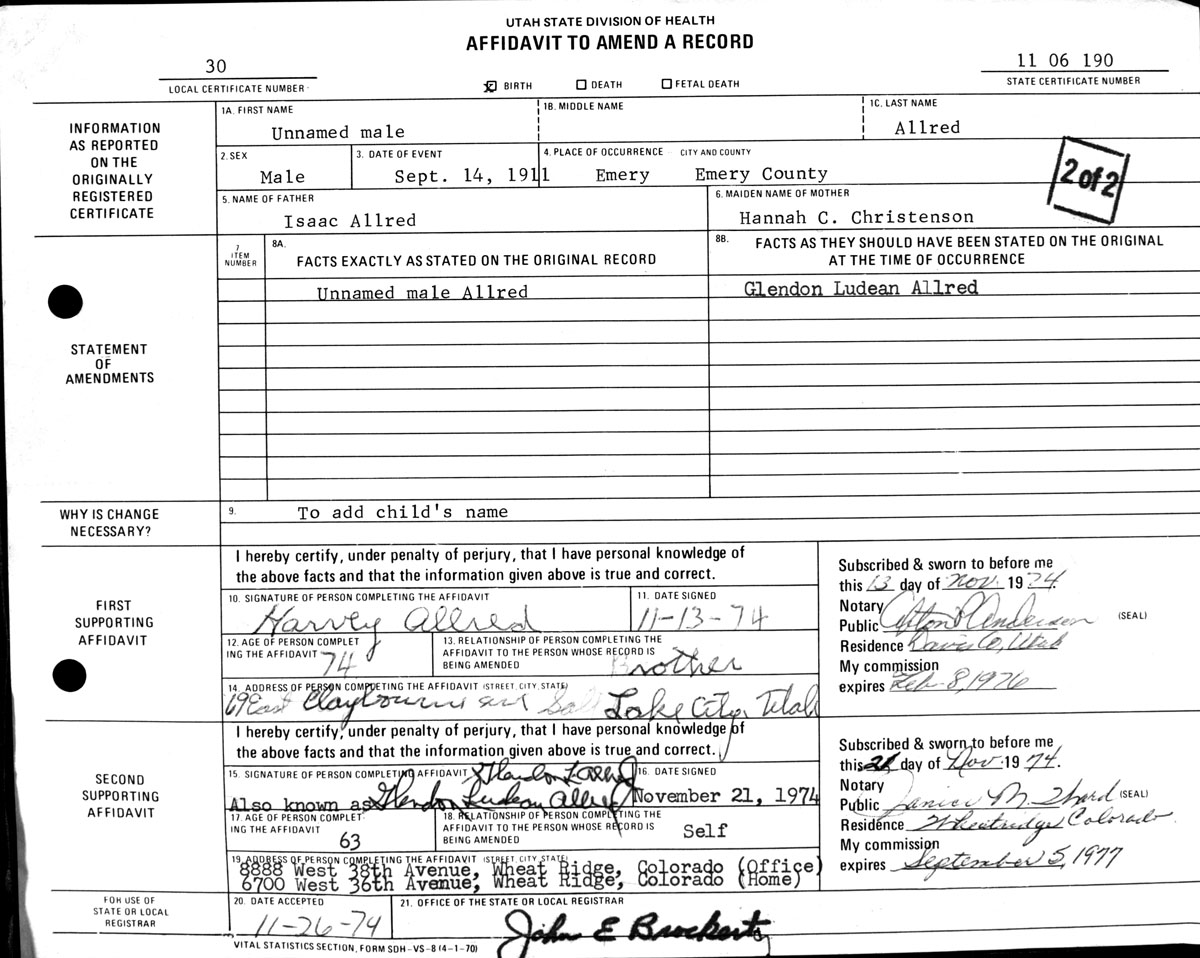 UTAH STATE DIVISION OF HEALTH
AFFIDAVIT TO AMEND A RECORD
30
LOCAL CERTIFICATE NUMBER
BIRTH DEATH FETAL DEATH
11 06 190
STATE CERTIFICATE NUMBER
INFORMATION
AS REPORTED
ON THE
ORIGINALLY
REGISTERED
CERTIFICATE
1A. FIRST NAME
Unnamed male
1B. MIDDLE NAME
1C. LAST NAME
Allred
2. SEX
Male
3. DATE OF EVENT
Sept. 14, 1911
4. PLACE OF OCCURRENCE - CITY AND COUNTY
Emery Emery County
2 of 2
5. NAME OF FATHER
Isaac Allred
6. MAIDEN NAME OF MOTHER
Hannah C. Christenson
STATEMENT
OF
AMENDMENTS
7
ITEM
NUMBER
8A.
FACTS EXACTLY AS STATED ON THE ORIGINAL RECORD
8B. FACTS AS THEY SHOULD HAVE BEEN STATED ON THE ORIGINAL
AT THE TIME OF OCCURRENCE
Unnamed male Allred
Glendon Ludean Allred
WHY IS CHANGE
NECESSARY?
9. To add child's name
FIRST
SUPPORTING
AFFIDAVIT
I hereby certify, under penalty of perjury, that I have personal knowledge of
the above facts and that the information given above is true and correct.
10. SIGNATURE OF PERSON COMPLETING THE AFFIDAVIT
Harvey Allred
11. DATE SIGNED
11-13-74
12. AGE OF PERSON COMPLET
ING THE AFFIDAVIT
74
13. RELATIONSHIP OF PERSON COMPLETING THE
AFFIDAVIT TO THE PERSON WHOSE RECORD IS
BEING AMENDED
Brother
14. ADDRESS OF PERSON COMPLETING THE AFFIDAVIT (STREET, CITY, STATE)
69 East Claybourne Salt Lake City Utah
Subscribed & sworn to before me
this 13 day of Nov. 1974.
Notary
Public Afton P Anderson (SEAL)
Residence Davis Co, Utah
My commission
expires Feb 8, 1976
SECOND
SUPPORTING
AFFIDAVIT
I hereby certify, under penalty of perjury, that I have personal knowledge of
the above facts and that the information given above is true and correct.
15. SIGNATURE OF PERSON COMPLETING AFFIDAVIT
Glendon L Allred
Also known as Glendon Ludean Allred
16. DATE SIGNED
November 21, 1974
17. AGE OF PERSON COMPLET
ING THE AFFIDAVIT
63
18. RELATIONSHIP OF PERSON COMPLETING THE
AFFIDAVIT TO THE PERSON WHOSE RECORD IS
BEING AMENDED
Self
19. ADDRESS OF PERSON COMPLETING THE AFFIDAVIT (STREET, CITY, STATE)
8888 West 38th Avenue, Wheat Ridge, Colorado (Office)
6700 West 36th Avenue, Wheat Ridge, Colorado (Home)
Subscribed & sworn to before me
this 21 day of Nov 1974.
Notary
Public Janice M. (SEAL)
Residence Wheatridge Colorado
My commission
expires September 5, 1977
FOR USE OF
STATE OR LOCAL
REGISTRAR
20. DATE ACCEPTED
11-26-74
21. OFFICE OF THE STATE OR LOCAL REGISTRAR
John E Brockert
VITAL STATISTICS SECTION, FORM SDH-VS-8 (4-1-70)